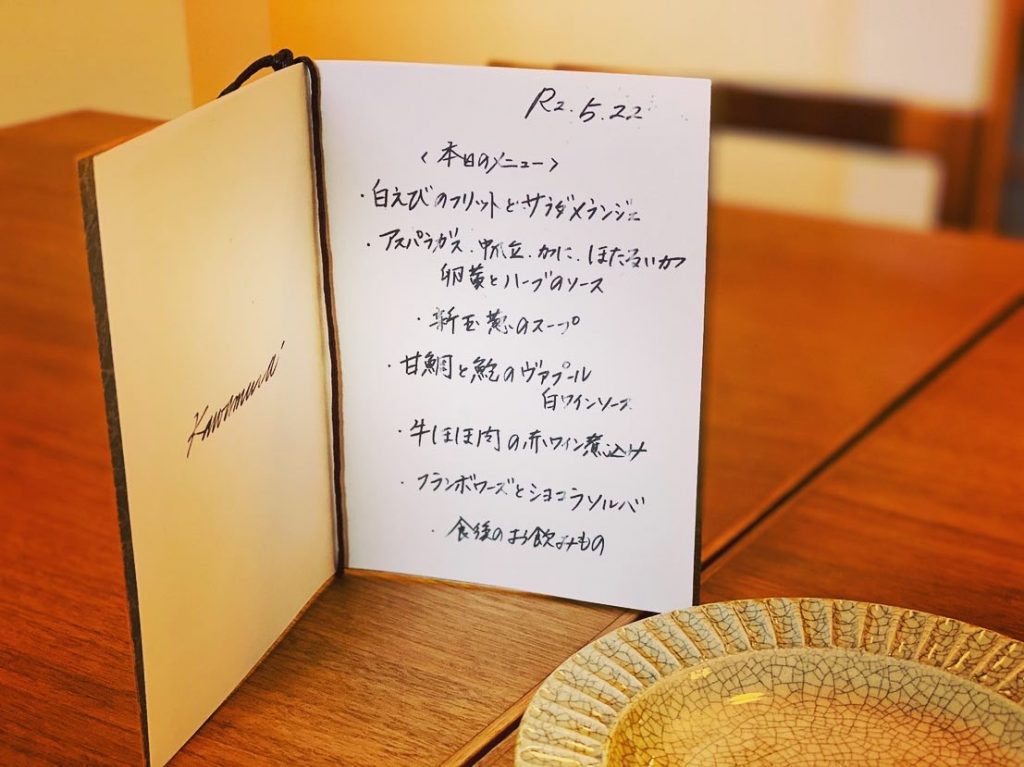 Kawamura
R2.5.22
〈本日のメニュー〉
・白えびのフリットとサラダメランジェ
・アスパラガス、帆立、かに、ほたるいか
卵黄とハーブのソース
・新玉葱のスープ
・甘鯛と鮑のヴァプール
白ワインソース
・牛ほほ肉の赤ワイン煮込み
・フランボワーズとショコラソルバ
・食後のお飲みもの